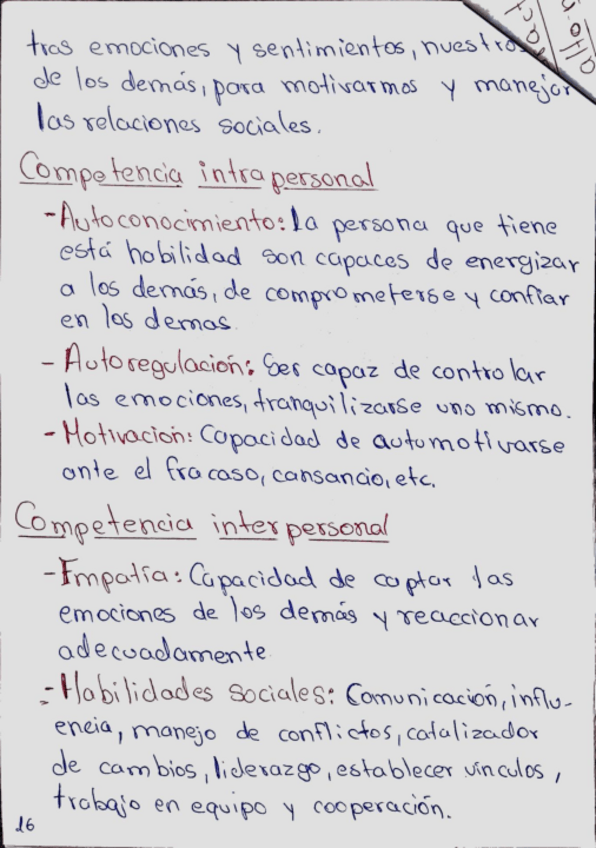 tras emociones y sentimientos, nuestros
de los demás, para motivarmos y manejar
las relaciones sociales.
Competencia intrapersonal
-Autoconocimiento: La persona que tiene
está habilidad son capaces de energizar
a los demás, de comprometerse y confiar
en los demas.
- Autoregulación: Ser capaz de controlar
las emociones, tranquilizarse uno mismo.
- Motivación: Capacidad de automotivarse
ante el fracaso, cansancio, etc.
Competencia interpersonal
-Empatía: Capacidad de captar las
emociones de los demás y reaccionar
adecuadamente
-Habilidades sociales: Comunicación, influ-
encia, manejo de conflictos, catalizador
de cambios, liderazgo, establecer vínculos,
trabajo en equipo y cooperación.
16